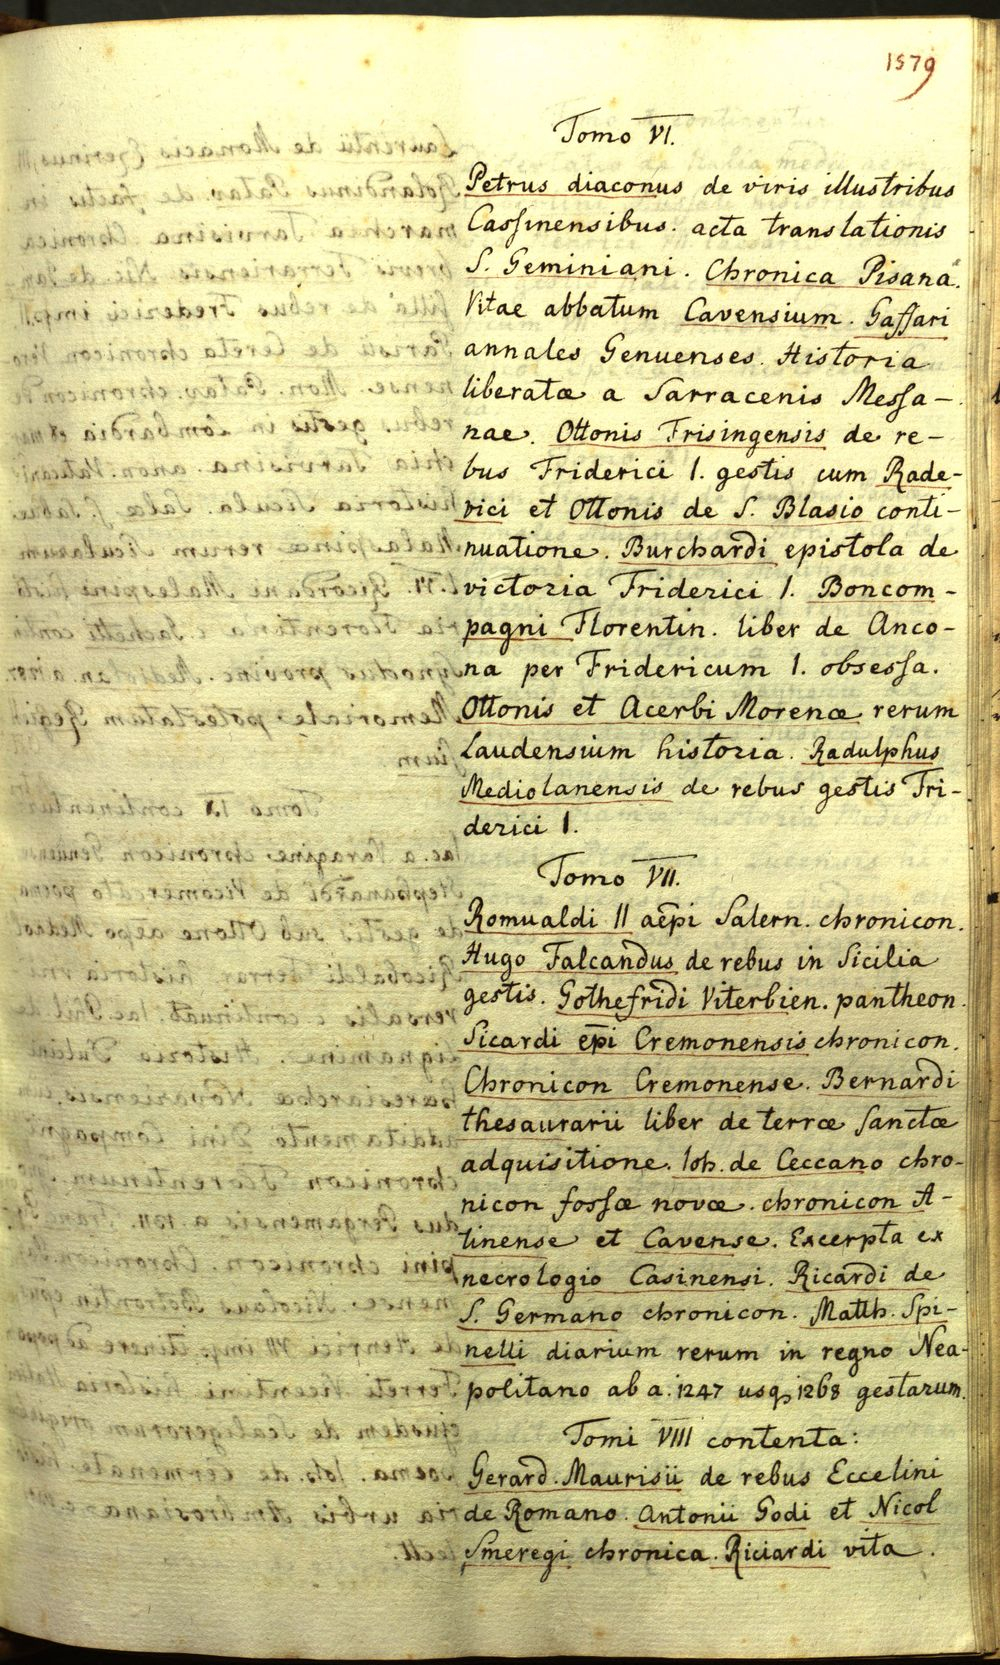 1579
Tomo VI.
Petrus diaconus de viris illustribus
Cassinensibus. acta translationis
S. Geminiani. Chronica Pisana.
Vitae abbatum Cavensium. Gaffari
annales Genuenses. Historia
liberatæ a Sarracenis Messa-
nae. Ottonis Frisingensis de re-
bus Friderici I. gestis cum Rade-
rici et Ottonis de S. Blasio conti-
nuatione. Burchardi epistola de
victoria Friderici I. Boncom-
pagni Florentin. liber de Anco-
na per Fridericum I. obsessa.
Ottonis et Acerbi Morenæ rerum
Laudensium historia. Radulphus
Mediolanensis de rebus gestis Fri-
derici I.
Tomo VII.
Romualdi II aēpi Salern. chronicon.
Hugo Falcandus de rebus in Sicilia
gestis. Gothefridi Viterbien. pantheon.
Sicardi ēpi Cremonensis chronicon.
Chronicon Cremonense. Bernardi
thesaurarii liber de terræ sanctæ
adquisitione. Ioh. de Ceccano chro-
nicon fossæ novæ. chronicon A-
tinense et Cavense. Excerpta ex
necrologio Casinensi. Ricardi de
S. Germano chronicon. Matth. Spi-
nelli diarium rerum in regno Nea-
politano ab a. 1247 usq 1268 gestarum.
Tomi VIII contenta:
Gerard. Maurisii de rebus Eccelini
de Romano. Antonii Godi et Nicol
Smeregi chronica. Riciardi vita.